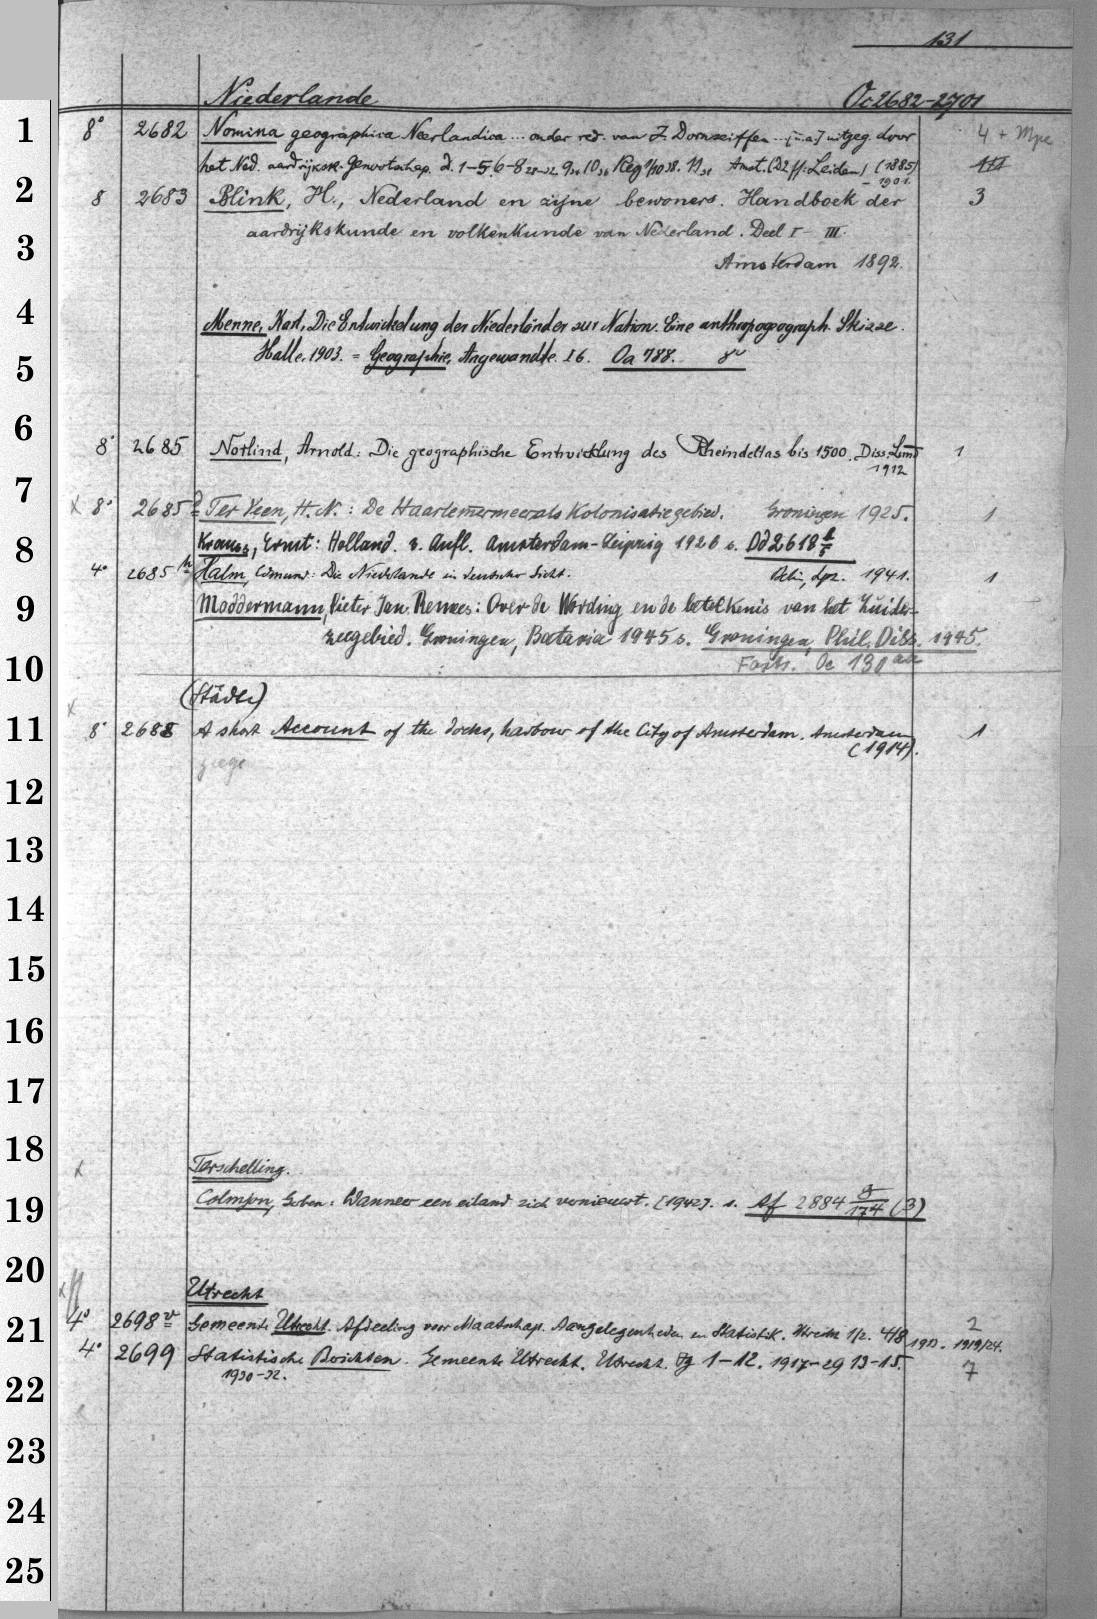 131
Niederlande Oc 2682-2701
1 8° 2682 Nomina geographica Neerlandica ... onder red. van J. Dornseiffen ... [u.a.] uitgeg. door 4 + Mpe
het Ned. aardrijksk. Genootschap. d. 1-5. 6-8 28-32 9 34 10 36 Reg 1/10 38. 11 38 Amst. (d2ff: Leiden) (1885)
- 1901. III
2 8 2683 Blink, H., Nederland en zijne bewoners. Handboek der 3
3 aardrijkskunde en volkenkunde van Nederland. Deel I - III.
Amsterdam 1892.
4 Menne, Karl, Die Entwickelung der Niederländer zur Nation. Eine anthropogeograph. Skizze.
5 Halle, 1903. = Geographie, Angewandte. I 6. Oa 788. 8°
6 8° 2685 Norlind, Arnold: Die geographische Entwicklung des Rheindeltas bis 1500. Diss. Lund 1
1912
7 x 8° 2685 Ter Veen, H. N.: De Haarlemermeer als Kolonisatiegebied. Groningen 1925. 1
8 Kraus, Ernst: Holland. 2. Aufl. Amsterdam-Leipzig 1926 s. Dd 2618
4° 2685 h Halm, Edmund: Die Niederlande in deutscher Sicht. Berlin, Lpz. 1941. 1
9 Moddermann, Pieter Jan Remees: Over de Wording en de beteekenis van het Zuider-
zeegebied. Groningen, Batavia 1945 s. Groningen, Phil. Diss. 1945.
10 Forts. Oc 130 aa
(Städte)
x
11 8° 2688 A short Account of the docks, harbour of the City of Amsterdam. Amsterdam 1
(1914).
12
13
14
15
16
17
18 x Terschelling.
19 Colmjon, Gerben: Wanneer een eiland zich vernieuwt. [1942]. s. Af 2884 g/174 (3)
20 Utrecht
x
21 4° 2698 v Gemeente Utrecht. Afdeeling voor Maatschap. Aangelegenheden en Statistik. Utrecht 1/2. 4/8 1919. 1919/24. 2
4° 2699 Statistische Berichten. Gemeente Utrecht. Utrecht. Jg 1-12. 1917-29 13-15. 7
22 1930-32.
23
24
25